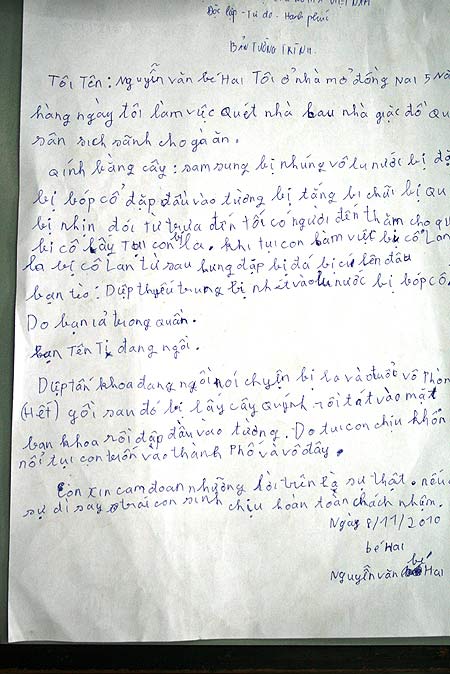 VIỆT NAM
Độc lập - Tự do - Hạnh phúc
BẢN TƯỜNG TRÌNH
Tôi Tên: Nguyễn văn bé Hai Tôi ở nhà mở đồng Nai 5 Nă
hàng ngày tôi làm vực Quét nhà Lau nhà giặc đồ Qu
sân sịch sãnh cho gà ăn.
Qính bằng cây: sam sung bị nhúng vô lu nước bị đá
bị bóp cổ đập đầu vào tường bị tăng bi chữi bị Qu
bị nhịn đói từ trưa đến tối có người đến thăm cho qu
bị cô lấy Tụi con bị la. Khi tụi con làm việc bị cô Lan
la bị cô Lan từ sau lưng đạp bị đá bị cú lên đầu
bạn tèo: Diệp thiếu trung bị nhét vào lu nước bị bóp cổ.
Do bạn ỉa trong quần.
bạn Tên Tị đang ngồi.
Diệp tấn khoa đang ngồi nói chyện bị la và đuổi vô Phòn
(Hết) gồi sau đó bị lấy cây Quýnh rồi tát vào mặt
bạn khoa rồi đập đầu vào tường. Do tụi con chịu khôn
nổi tụi con trốn vào thành Phố và vô đây.
Con xin cam đoan nhưỡng lời trên là sự thật. nếu
sự dì say trái con sinh chịu hoàn toàn chách nhâm.
Ngày 8/11/2010
bé Hai
Nguyễn văn bé Hai